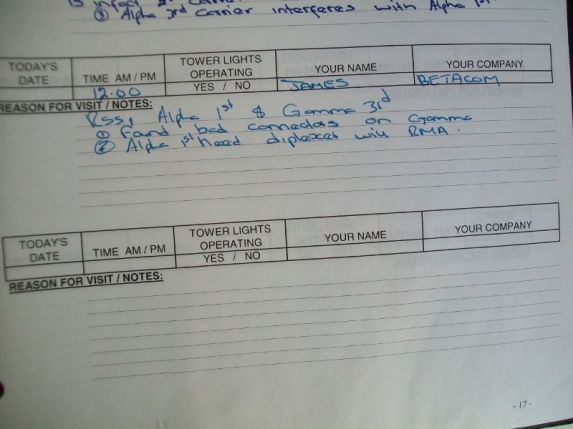 ③ Alpha 3rd Carrier interferes with Alpha 1st
TODAY'S DATE TIME AM / PM TOWER LIGHTS OPERATING YES / NO YOUR NAME YOUR COMPANY
12:00 JAMES BETACOM
REASON FOR VISIT / NOTES:
RSSI Alpha 1st & Gamma 3rd
① Found bad connectors on Gamma
② Alpha 1st need diplexer will RMA.
TODAY'S DATE TIME AM / PM TOWER LIGHTS OPERATING YES / NO YOUR NAME YOUR COMPANY
REASON FOR VISIT / NOTES:
- 17 -